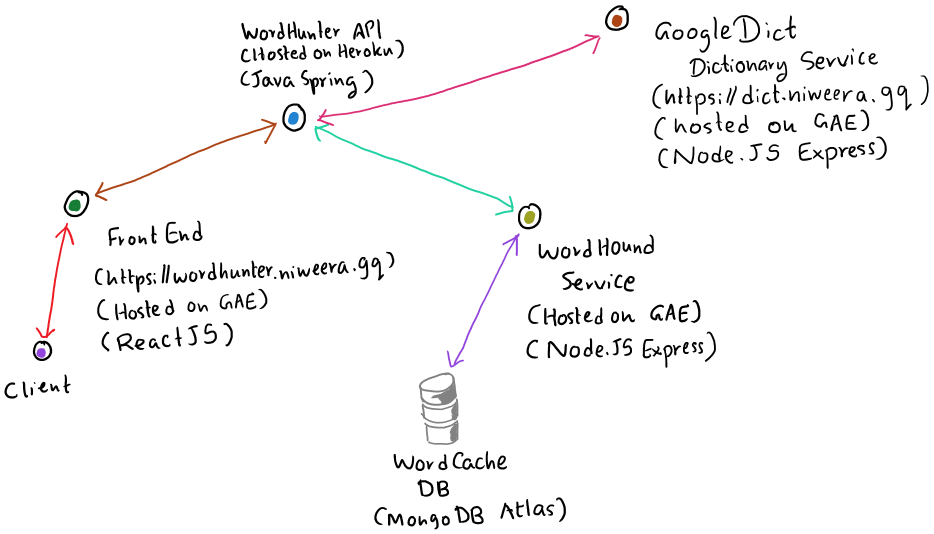 WordHunter API
(Hosted on Heroku)
(Java Spring)
GoogleDict
Dictionary Service
(https://dict.niweera.gq)
(hosted on GAE)
(Node.JS Express)
FrontEnd
(https://wordhunter.niweera.gq)
(Hosted on GAE)
(ReactJS)
WordHound
Service
(Hosted on GAE)
(Node.JS Express)
Client
WordCache
DB
(MongoDB Atlas)